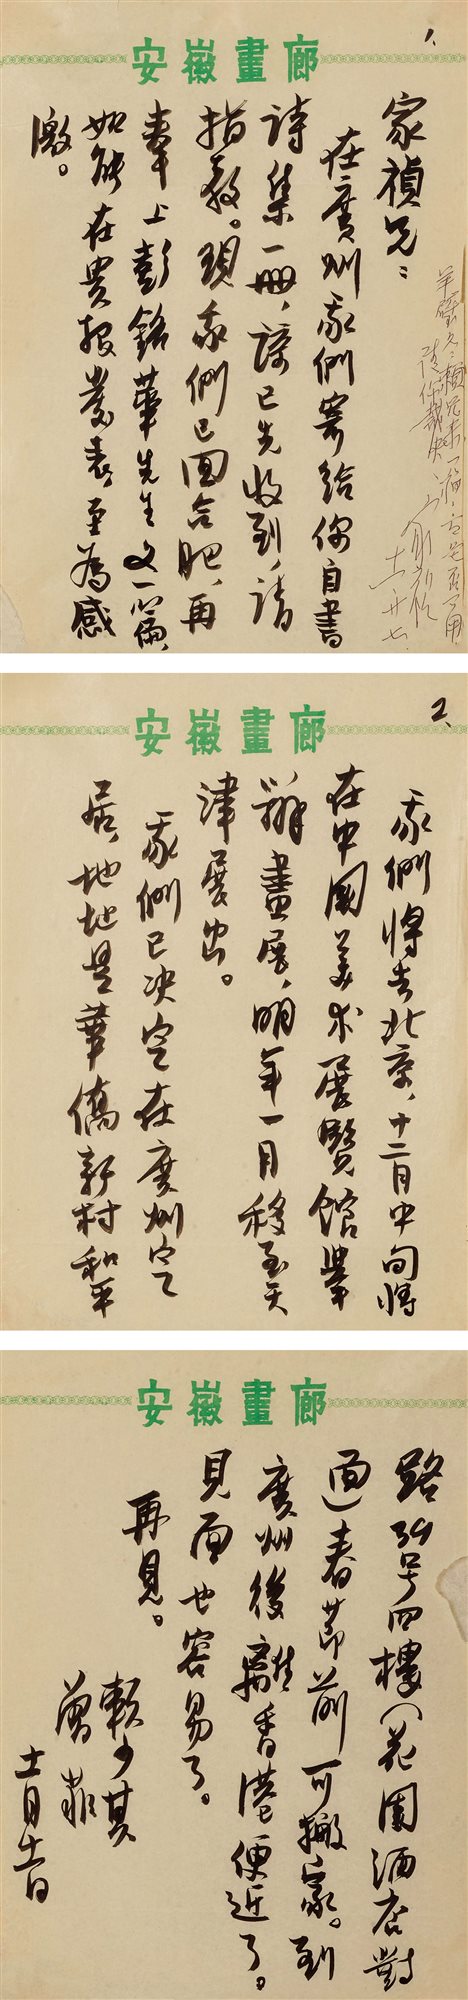 安徽畫廊
1.
家禎兄：
在廣州我們寄給你自書
詩集一冊，諒已先收到，請
指教。現我們已回合肥，再
奉上彭銘華先生文一篇，
如能在貴報發表，至為感
激。
安徽畫廊
2.
我們將去北京，十二月中旬將
在中國美術展覽館舉
辦畫展，明年一月移至天
津展出。
我們已决定在廣州定
居，地址是華僑新村和平
安徽畫廊
路39号四樓（花園酒店對
面）春節前可搬家。到
廣州後離香港便近了。
見面也容易了。
再見。
賴少其
曾菲
十一月十一日